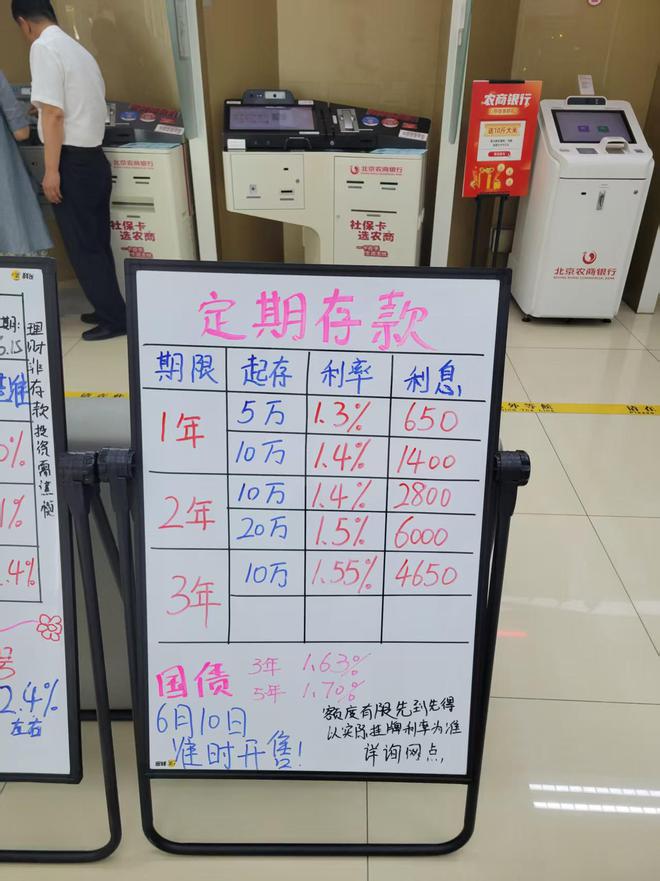 农商银行
送10斤大米
北京农商银行
社保卡
选农商
北京农商银行
社保卡
选农商
北京农商银行
定期存款
期限 起存 利率 利息
1年 5万 1.3% 650
10万 1.4% 1400
2年 10万 1.4% 2800
20万 1.5% 6000
3年 10万 1.55% 4650
国债 3年 1.63%
5年 1.70%
6月10日
准时开售!
额度有限先到先得
以实际挂牌利率为准
详询网点
理财非存款投资需谨慎
期:
1%
.4%
号
2.4%
左右